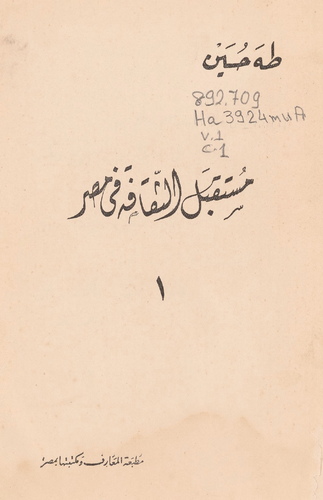 طه حسين
892.709
Ha3924muA
v.1
c.1
مُستقبل الثقافة في مصر
١
مطبعة المعارف ومكتبتها بمصر